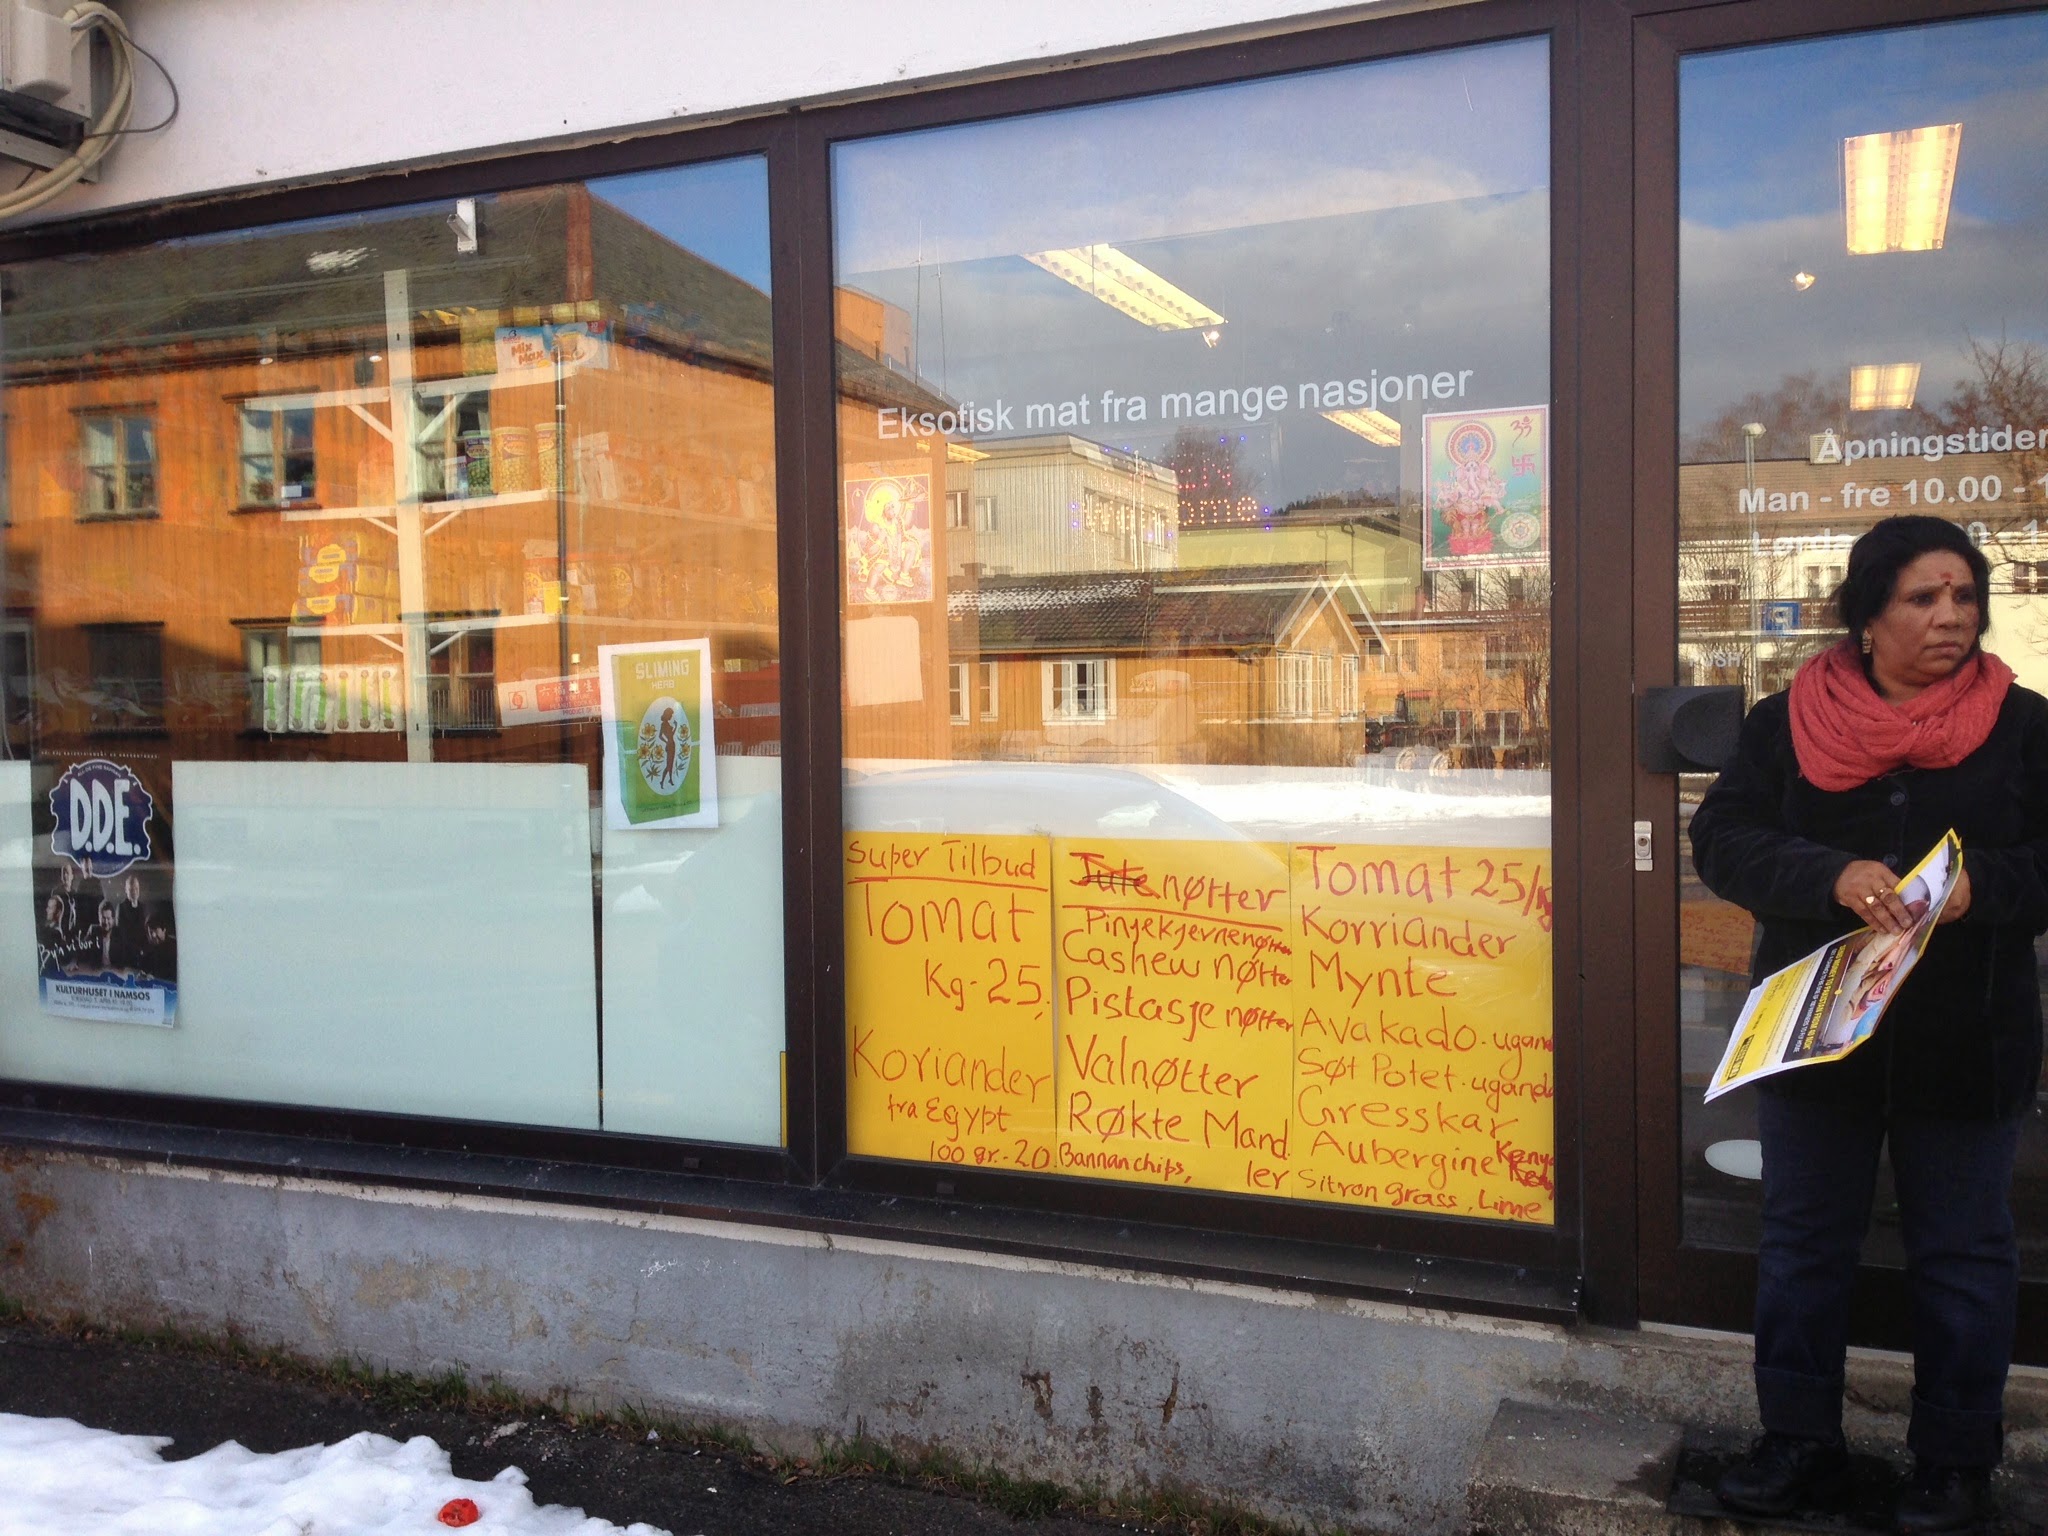 Eksotisk mat fra mange nasjoner
Åpningstider
Man - fre 10.00 - 1
Mix
Max
SLIMING
HERB
D.D.E.
KULTURHUSET I NAMSOS
Super Tilbud
TOMAT
Kg - 25,
Koriander
fra Egypt
100 gr. - 20.
Jute nøtter
Pinjekjernenøtter
Cashew nøtter
Pistasje nøtter
Valnøtter
Røkte Mand
ler
Bannanchips,
Tomat 25/kg
Korriander
Mynte
Avakado - ugand
Søt Potet - uganda
Gresskar
Aubergine Kenya
Sitron grass, Lime